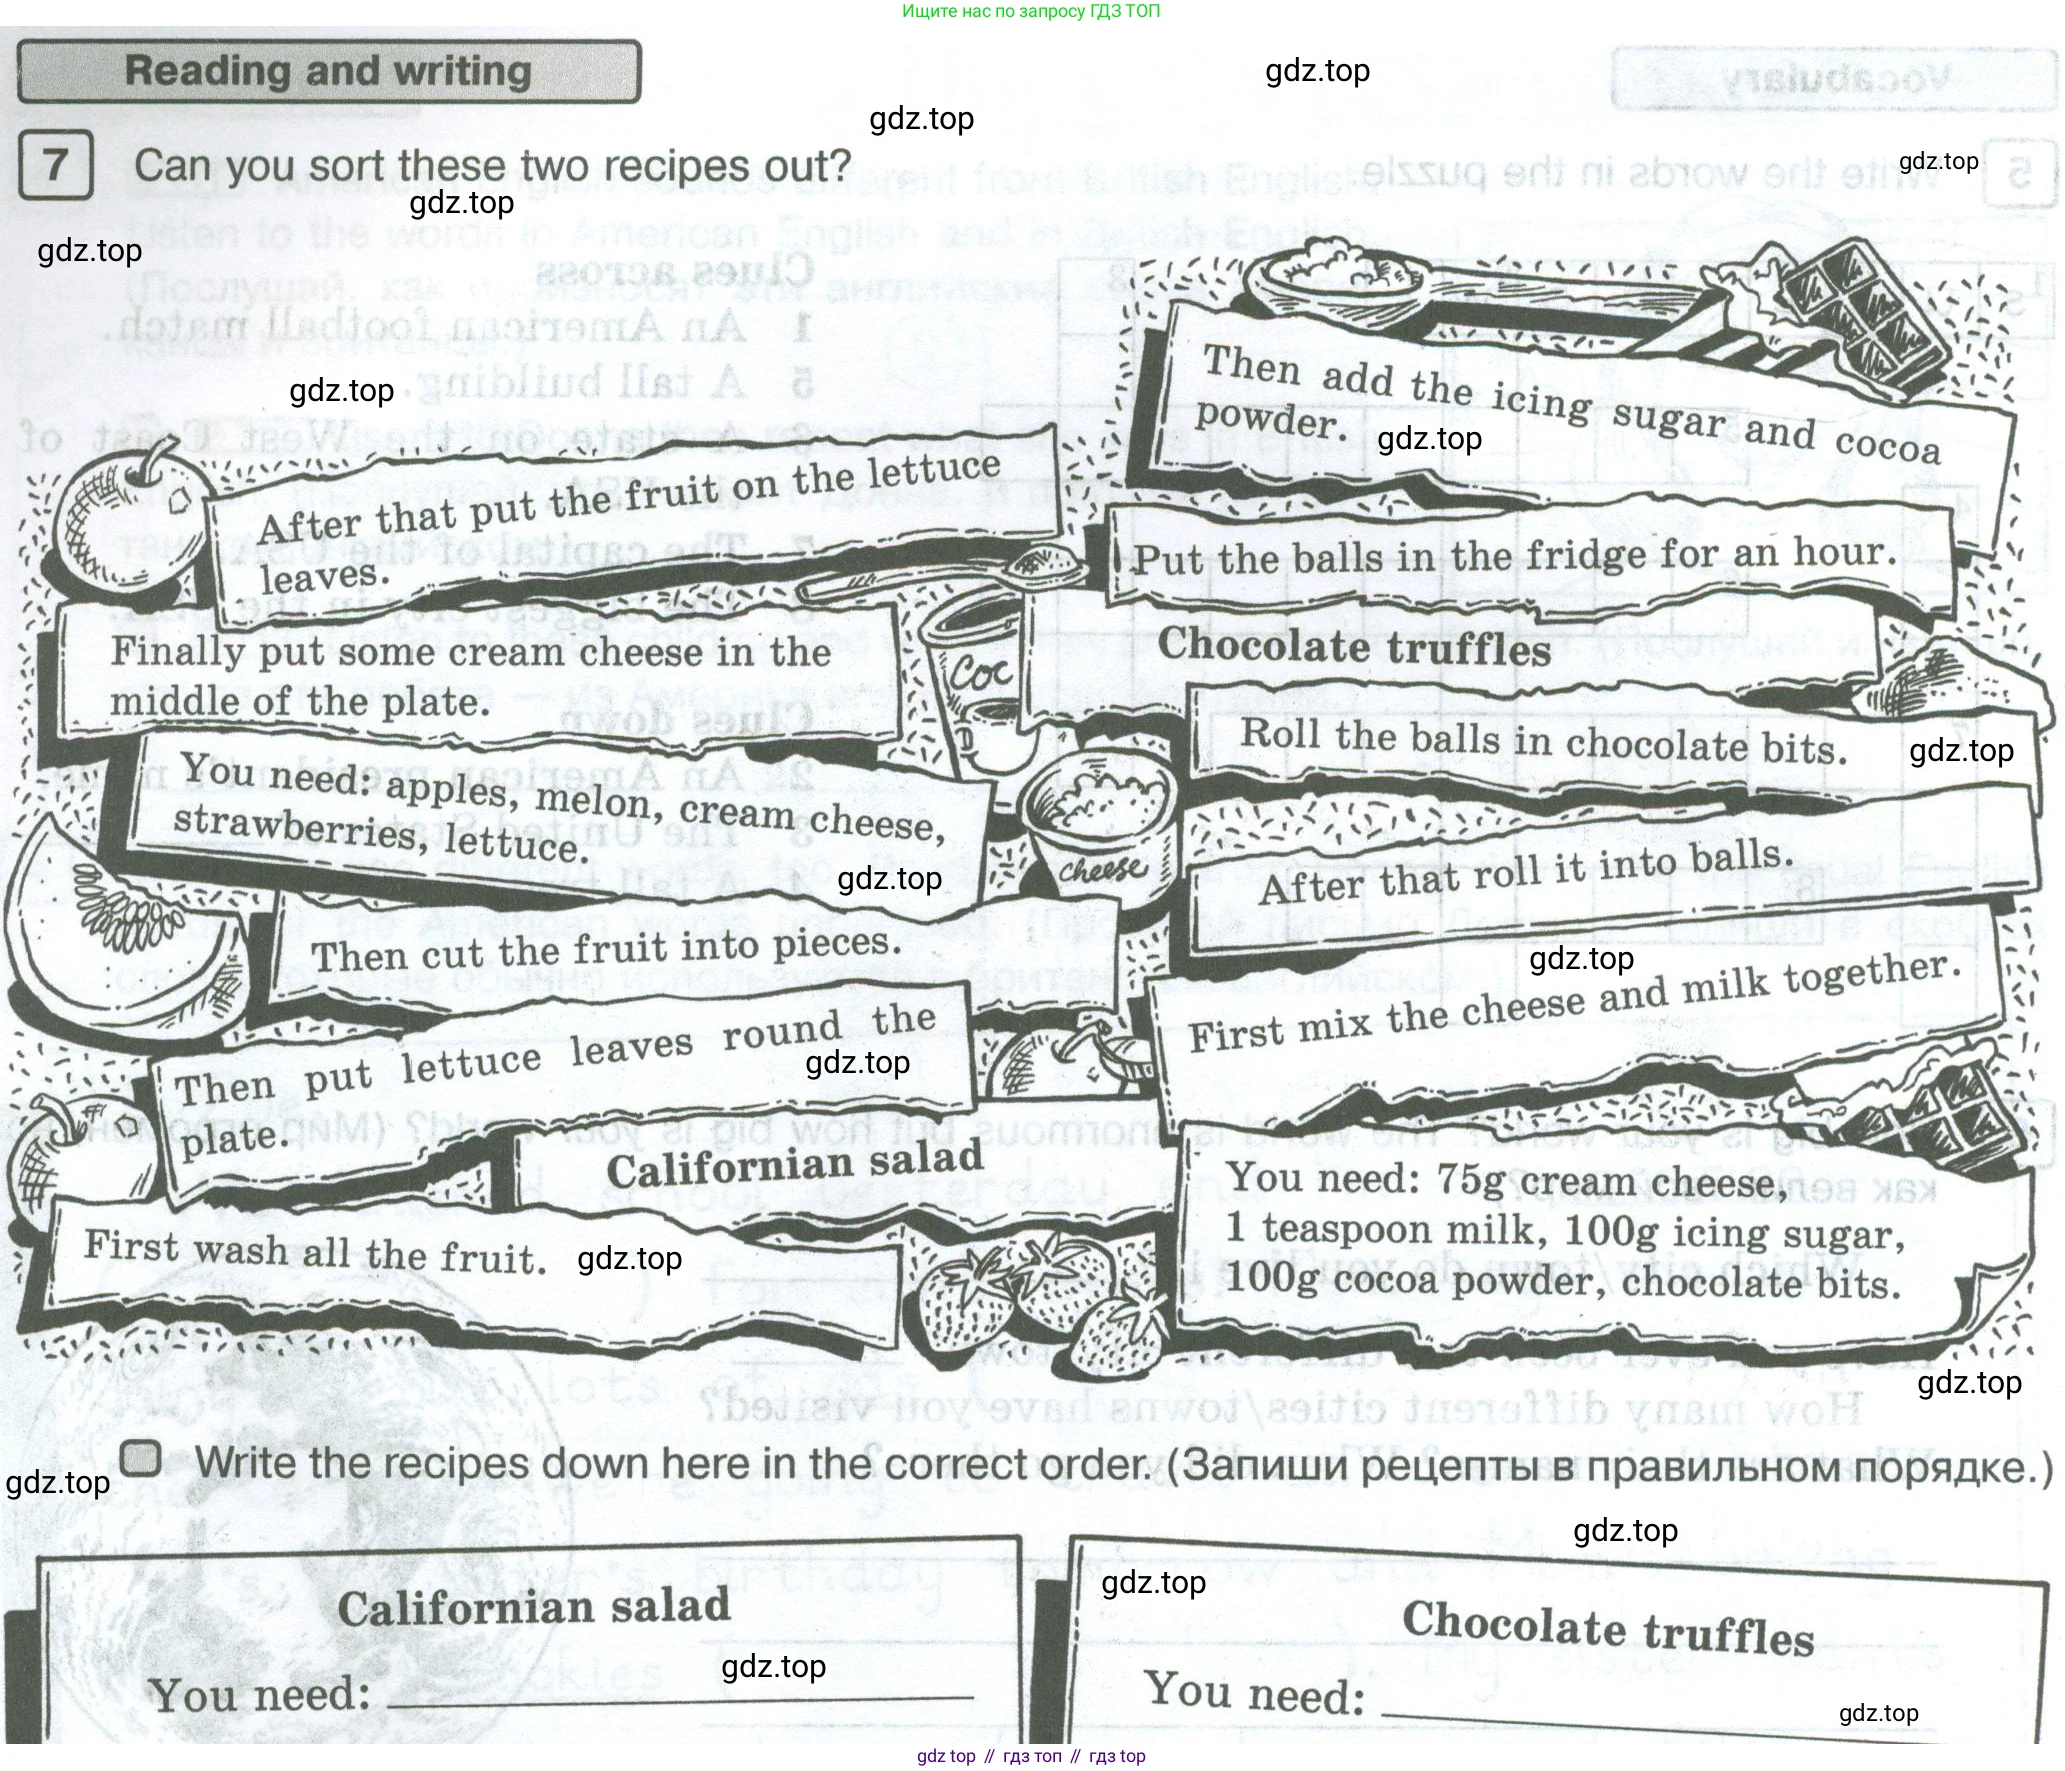 Ищите нас по запросу ГДЗ ТОП
Reading and writing
gdz.top
gdz.top
7 Can you sort these two recipes out?
gdz.top
gdz.top
gdz.top
gdz.top
Then add the icing sugar and cocoa
powder.
gdz.top
After that put the fruit on the lettuce
leaves.
Put the balls in the fridge for an hour.
Finally put some cream cheese in the
middle of the plate.
Coc
Chocolate truffles
Roll the balls in chocolate bits.
gdz.top
You need: apples, melon, cream cheese,
strawberries, lettuce.
gdz.top
cheese
After that roll it into balls.
Then cut the fruit into pieces.
gdz.top
First mix the cheese and milk together.
Then put lettuce leaves round the
plate.
gdz.top
Californian salad
You need: 75g cream cheese,
1 teaspoon milk, 100g icing sugar,
100g cocoa powder, chocolate bits.
First wash all the fruit.
gdz.top
gdz.top
Write the recipes down here in the correct order. (Запиши рецепты в правильном порядке.)
gdz.top
gdz.top
Californian salad
You need:
gdz.top
gdz.top
Chocolate truffles
You need:
gdz.top
gdz top // гдз топ // гдз top